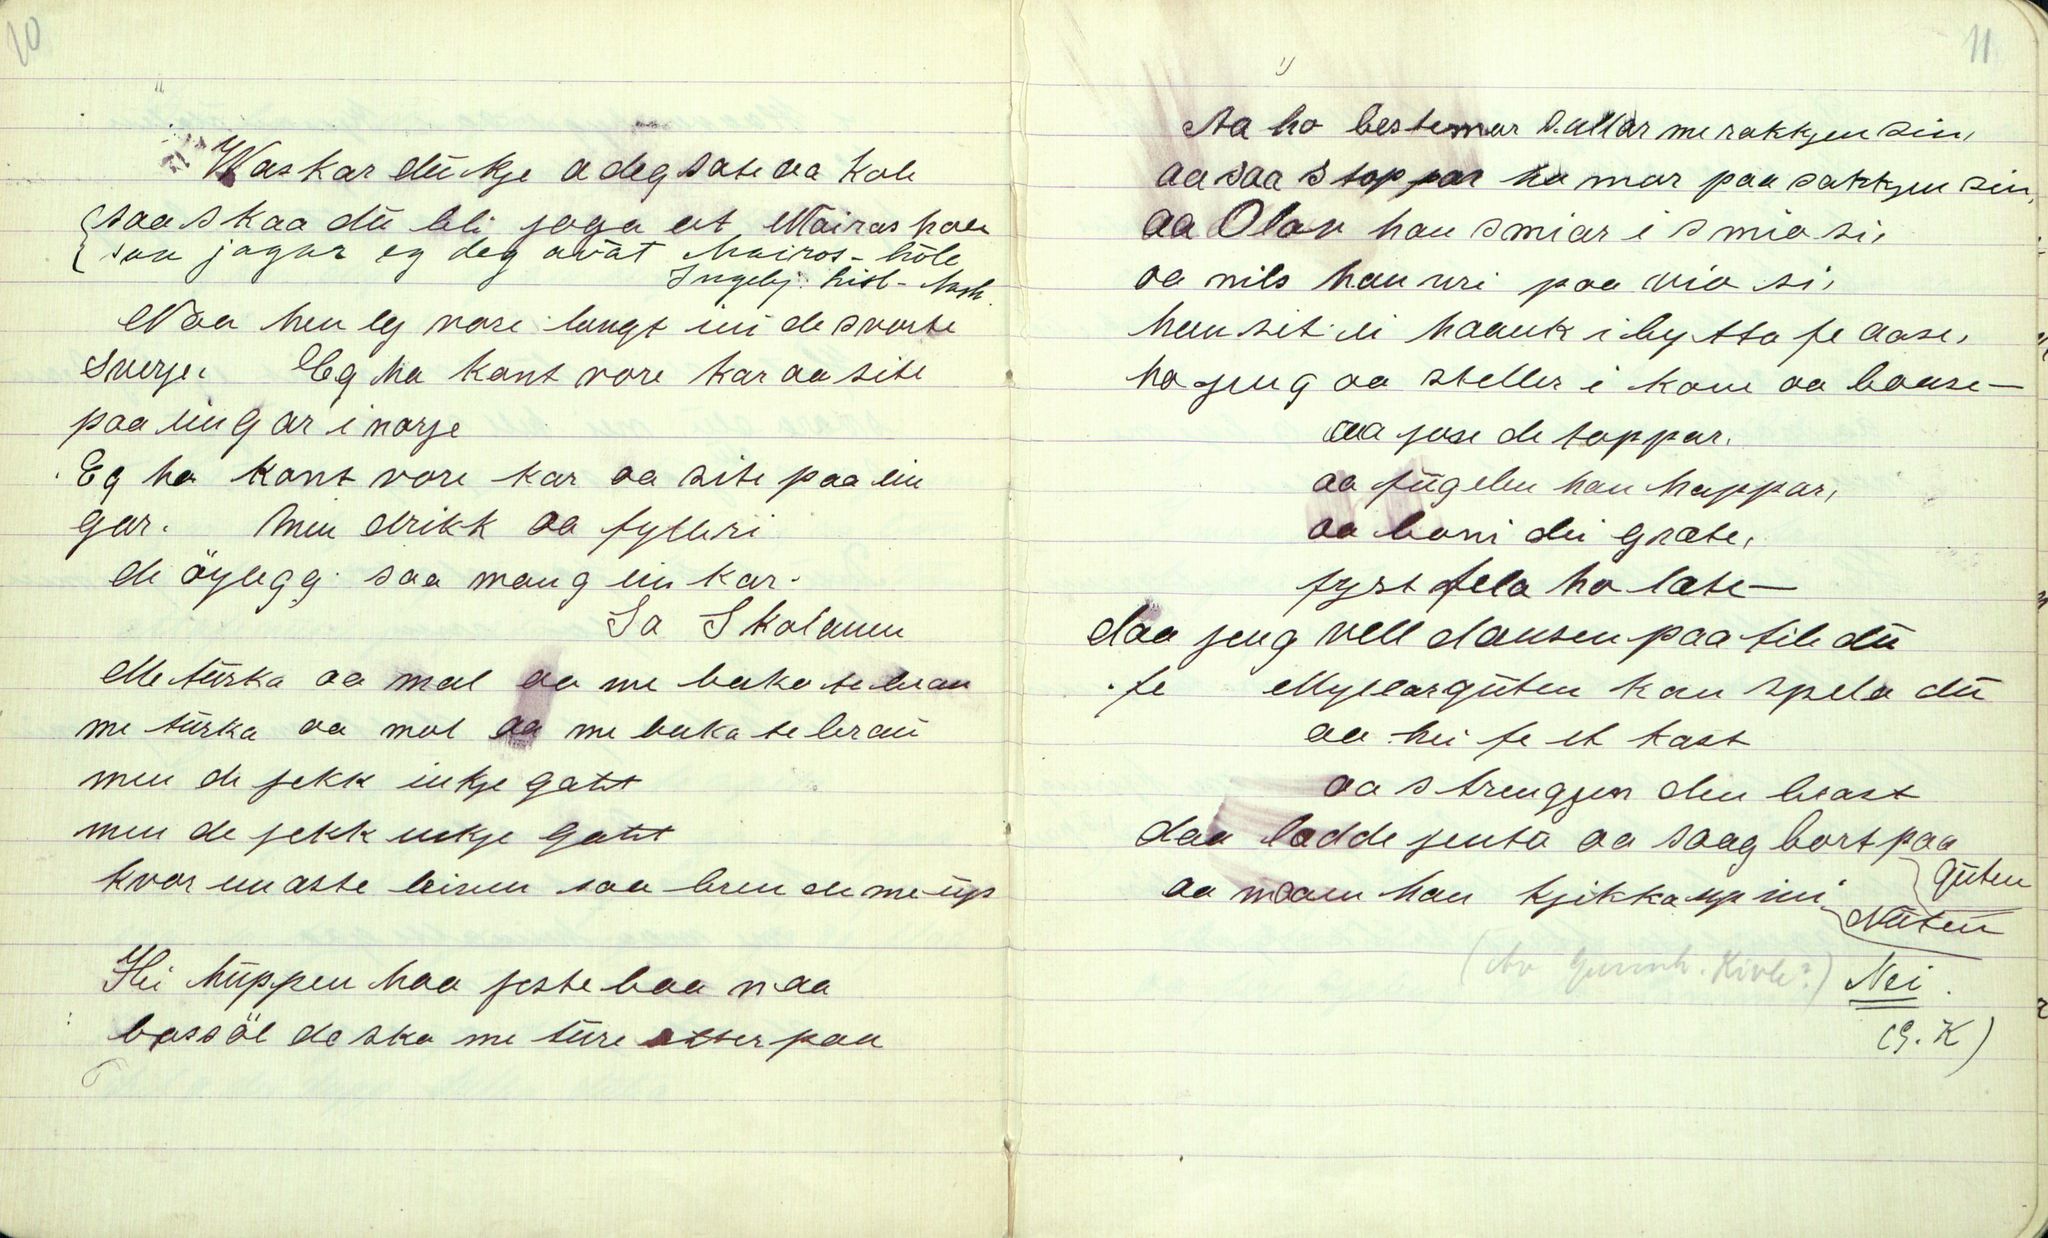 10
Waskar dü kje a deg sate aa kole
saa skaa dü bli joga ut Mairas hole
saa jagar eg deg avāt Mairos-hôle
Ingebj. Lisl-Aash.
Naa hen eg vore langt ini de svorte
Sverje. Eg ha kant vore kar aa site
paa ein gar i norje
Eg ha kant vore kar aa site paa ein
gar. Men drikk aa fylleri
de öylegg saa mang ein kar.
Sa Skolamen
Me türka aa mol aa me baka te brau
me türka aa mol aa me baka te braü
men de jekk inkje gatt
men de jekk inkje gatt
kvor einaste leiven saa bren de me üp
Hei hüppen haa feste baa naa
bassöl de ska me türe etter paa
11
Aa ho bestemor sullar me rakkjen sin,
aa saa stoppar ho mor paa sakkjen sin,
aa Olav han smiar i smio si,
aa nils han vri paa vio si,
han sit ei haank i bytta fe aase,
ho jeng aa steller i kove aa baase—
aa jose de toppar.
aa fügelen han happar,
aa boni dei græte,
fyst fela ho læte—
daa jeng vell dansen paa tile dü
fe Myllargüten kan spela dü
aa hei fe et kast
aa strengjen den brast
daa ladde jenta aa saag bort paa
güten
aa maanen han kjikka up ivi
Nüten
(Av Gunnh. Kivle?) Nei.
(G. K)